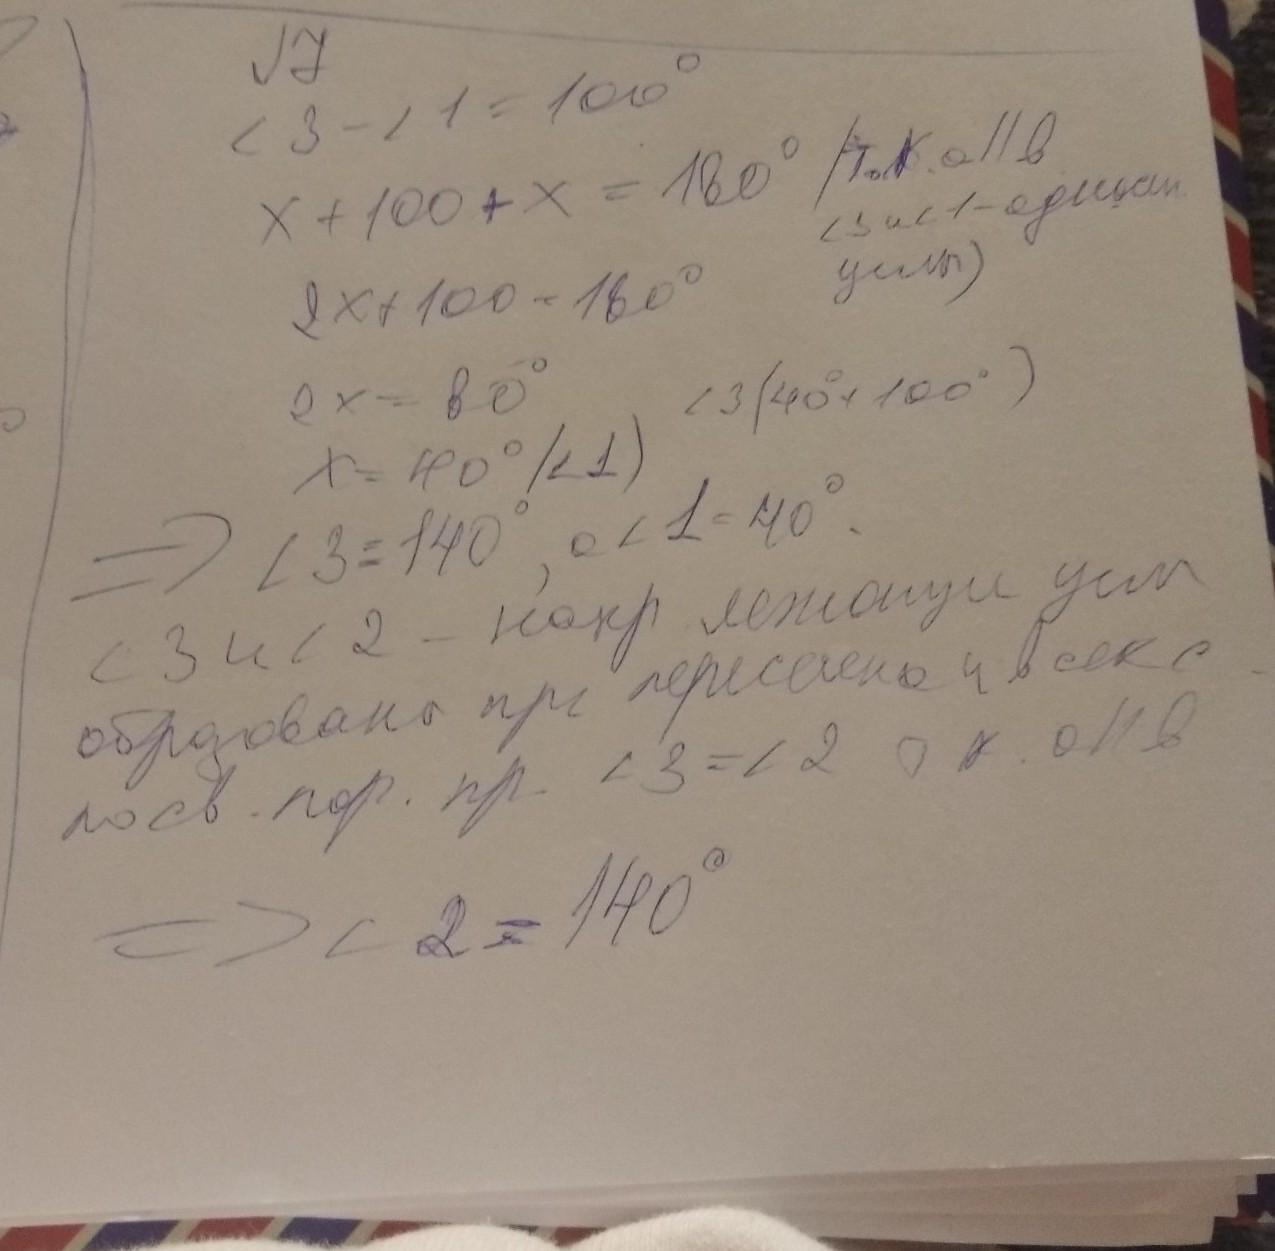 √7
<3 - <1 = 100°
x + 100 + x = 180° (т.к. a || b
<3 и <1 - одншн
углы)
2x + 100 = 180°
2x = 80°
<3 (40° + 100°)
x = 40° (<1)
=> <3 = 140°, а <1 = 40°.
<3 и <2 - накр лежащи углы
образованы при пересечена и в секс
по св. пар. пр. <3 = <2 т к. a || b
=> <2 = 140°